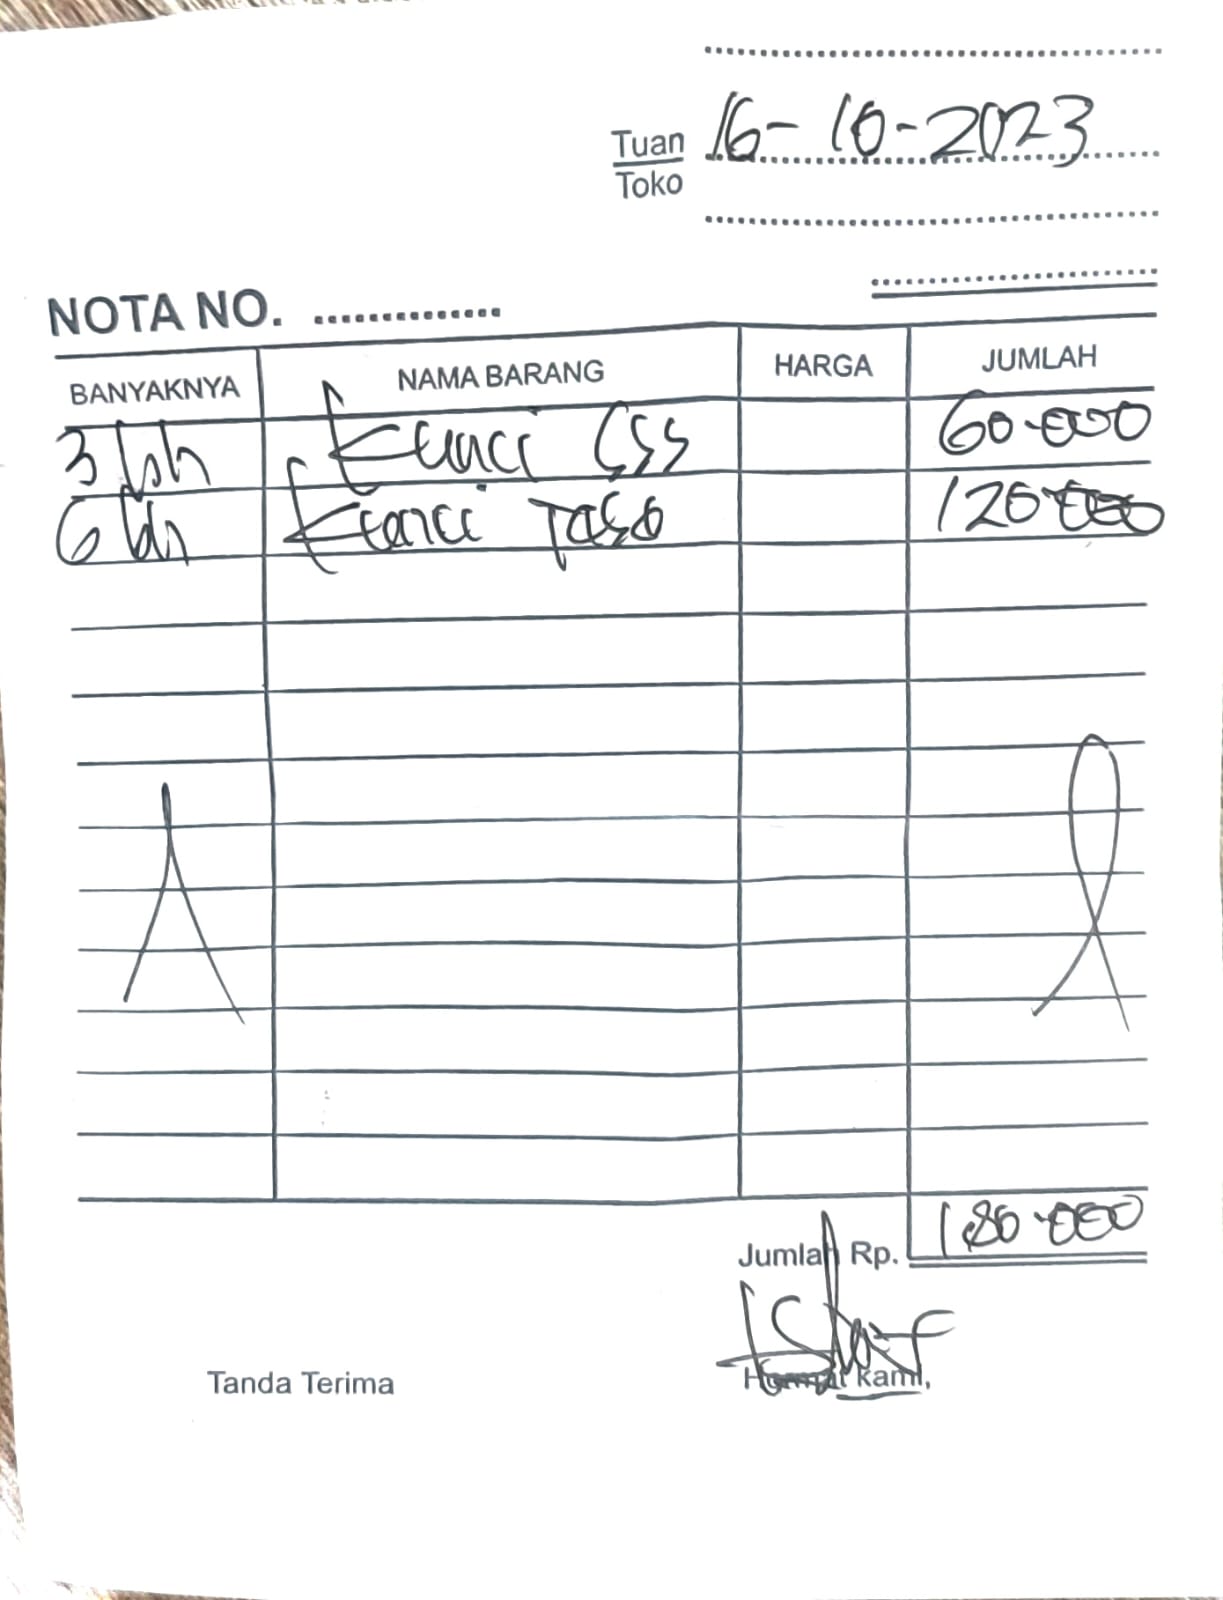 Tuan 16-10-2023
Toko
NOTA NO.
BANYAKNYA NAMA BARANG HARGA JUMLAH
3 bh Kunci 60.000
6 bh Kunci 120.000
Jumlah Rp. 180.000
Tanda Terima Hormat kami,